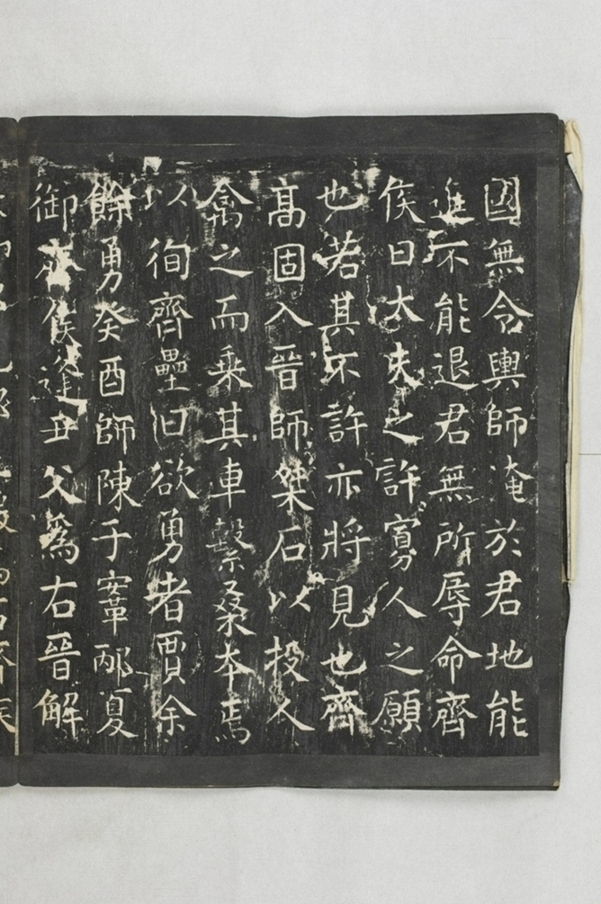 國無令輿師淹於君地能
進不能退君無所辱命齊
侯曰大夫之許寡人之願
也若其不許亦將見也齊
髙固入晉師桀石以投人
禽之而乘其車繫桑本焉
以徇齊壘曰欲勇者賈余
餘勇癸酉師陳于鞌邴夏
御齊侯逢丑父爲右晉解